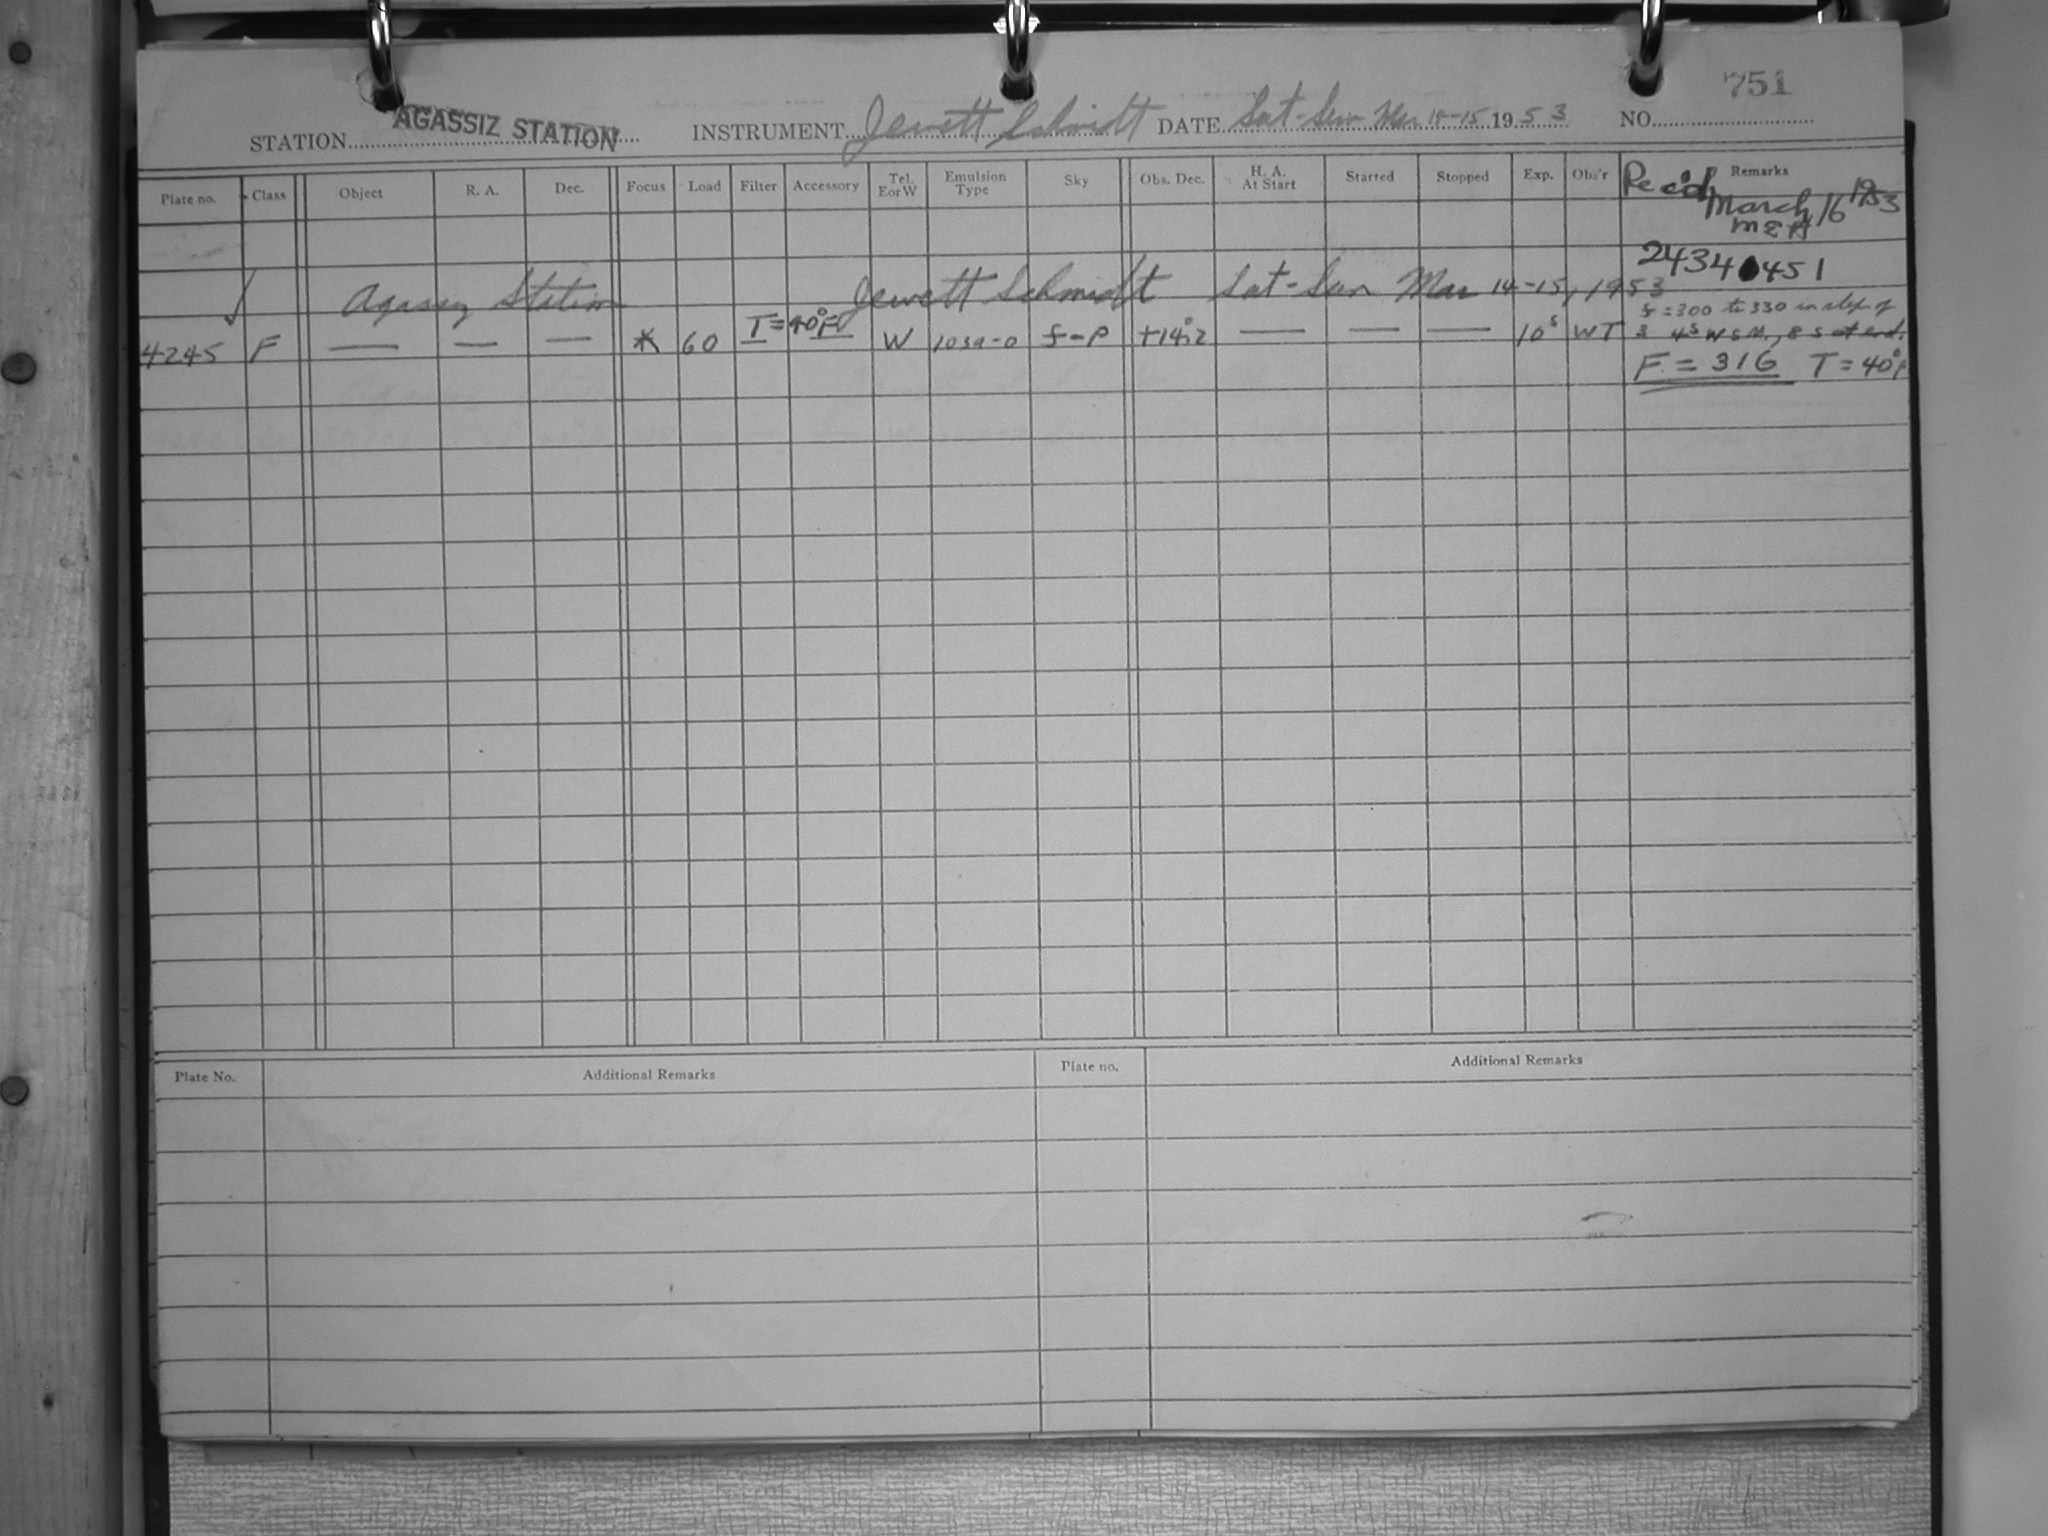 751
STATION AGASSIZ STATION INSTRUMENT Jewett Schmidt DATE Sat-Sun Mar 14-15 1953 NO.
Plate no. Class Object R. A. Dec. Focus Load Filter Accessory Tel. E or W Emulsion Type Sky Obs. Dec. H. A. At Start Started Stopped Exp. Obs'r Remarks
Rec'd March 16 1953
MEH
2434 451
✓ Agassiz Station Jewett Schmidt Sat-Sun Mar 14-15, 1953
T=40°F f=300 to 330 in step of
4245 F — — — * 60 — — W 103a-0 f-p +14°.2 — — — 10s WT 3 4s W S N., 8 s at end.
F = 316 T = 40°F
Plate No. Additional Remarks Plate no. Additional Remarks